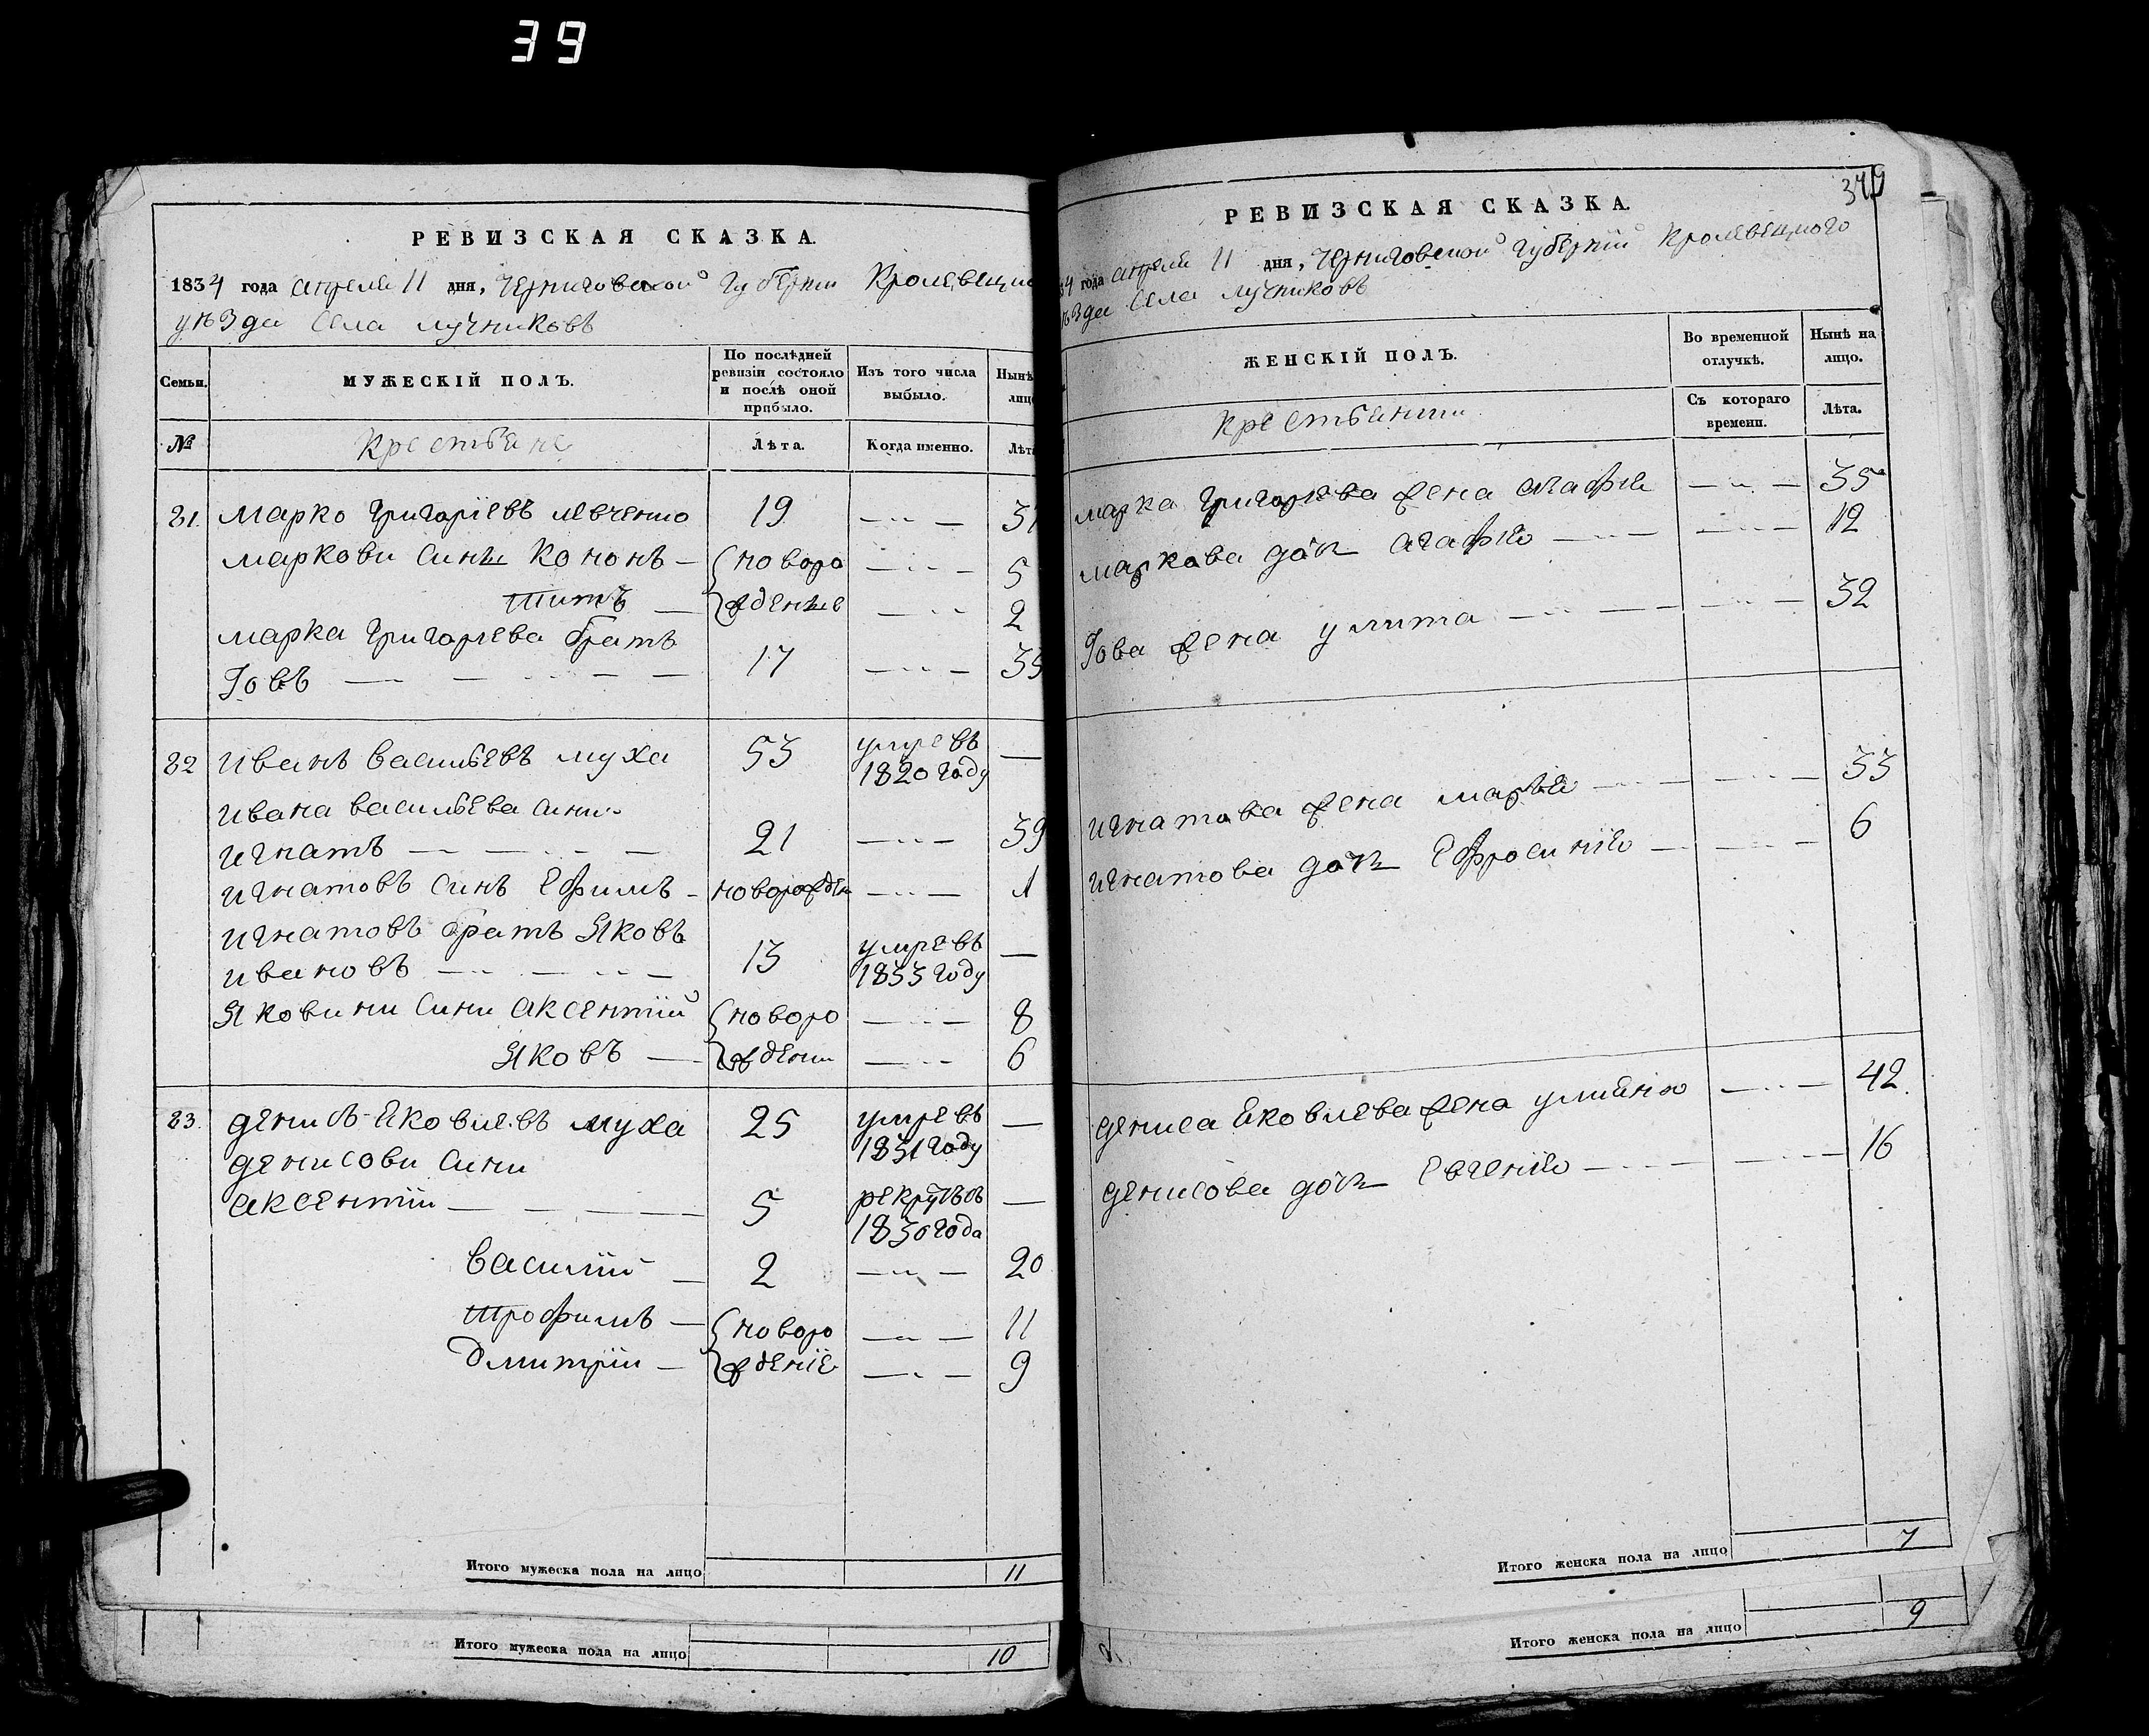 39
РЕВИЗСКАЯ СКАЗКА.
1834 года апреля 11 дня, Черниговской Губернии Кролевецко
уѣзда села Лучниковъ
Семьи.
МУЖЕСКІЙ ПОЛЪ.
По послѣдней ревизіи состояло и послѣ оной прибыло.
Изъ того числа выбыло.
Нынѣ
лицо
№
Крестьяне
Лѣта.
Когда именно.
Лѣта
21. Марко Григоріевъ Левченко 19 37
Маркови сины Кононъ новоро 5
Титъ жденые 2
Марка Григорьева братъ
Іовъ 17 35
22 Иванъ Васильевъ Муха 53 умре въ
1820 году
Ивана Васильева сини
Игнатъ 21 39
Игнатовъ синъ Ефимъ новорожден 1
Игнатовъ братъ Яковъ
Ивановъ 13 умре въ
1833 году
Яковини сини Аксентій новоро 8
Яковъ ждени 6
23. Денисъ Яковлевъ Муха 25 умре въ
1831 году
Денисови сини
Аксентіи 5 рекрутъ съ
1830 года
Василій 2 20
Трофимъ новоро 11
Дмитріи жденіе 9
Итого мужеска пола на лицо 11
Итого мужеска пола на лицо 10
РЕВИЗСКАЯ СКАЗКА.
34 года апреля 11 дня, Черниговской Губерніи Кролевецкого
ѣзда села Лучниковъ
ЖЕНСКІЙ ПОЛЪ.
Во временной отлучкѣ.
Нынѣ на лицо.
Крестьянки
Съ котораго времени.
Лѣта.
Марка Григорьева жена Агафія 35
Маркова дочь Агафію 12
Іова жена Улита 32
Игнатова жена Марія 33
Игнатова дочь Ефросинію 6
Дениса Яковлева жена Улиянію 42.
Денисова дочь Евгенію 16
Итого женска пола на лицо 7
Итого женска пола на лицо 9